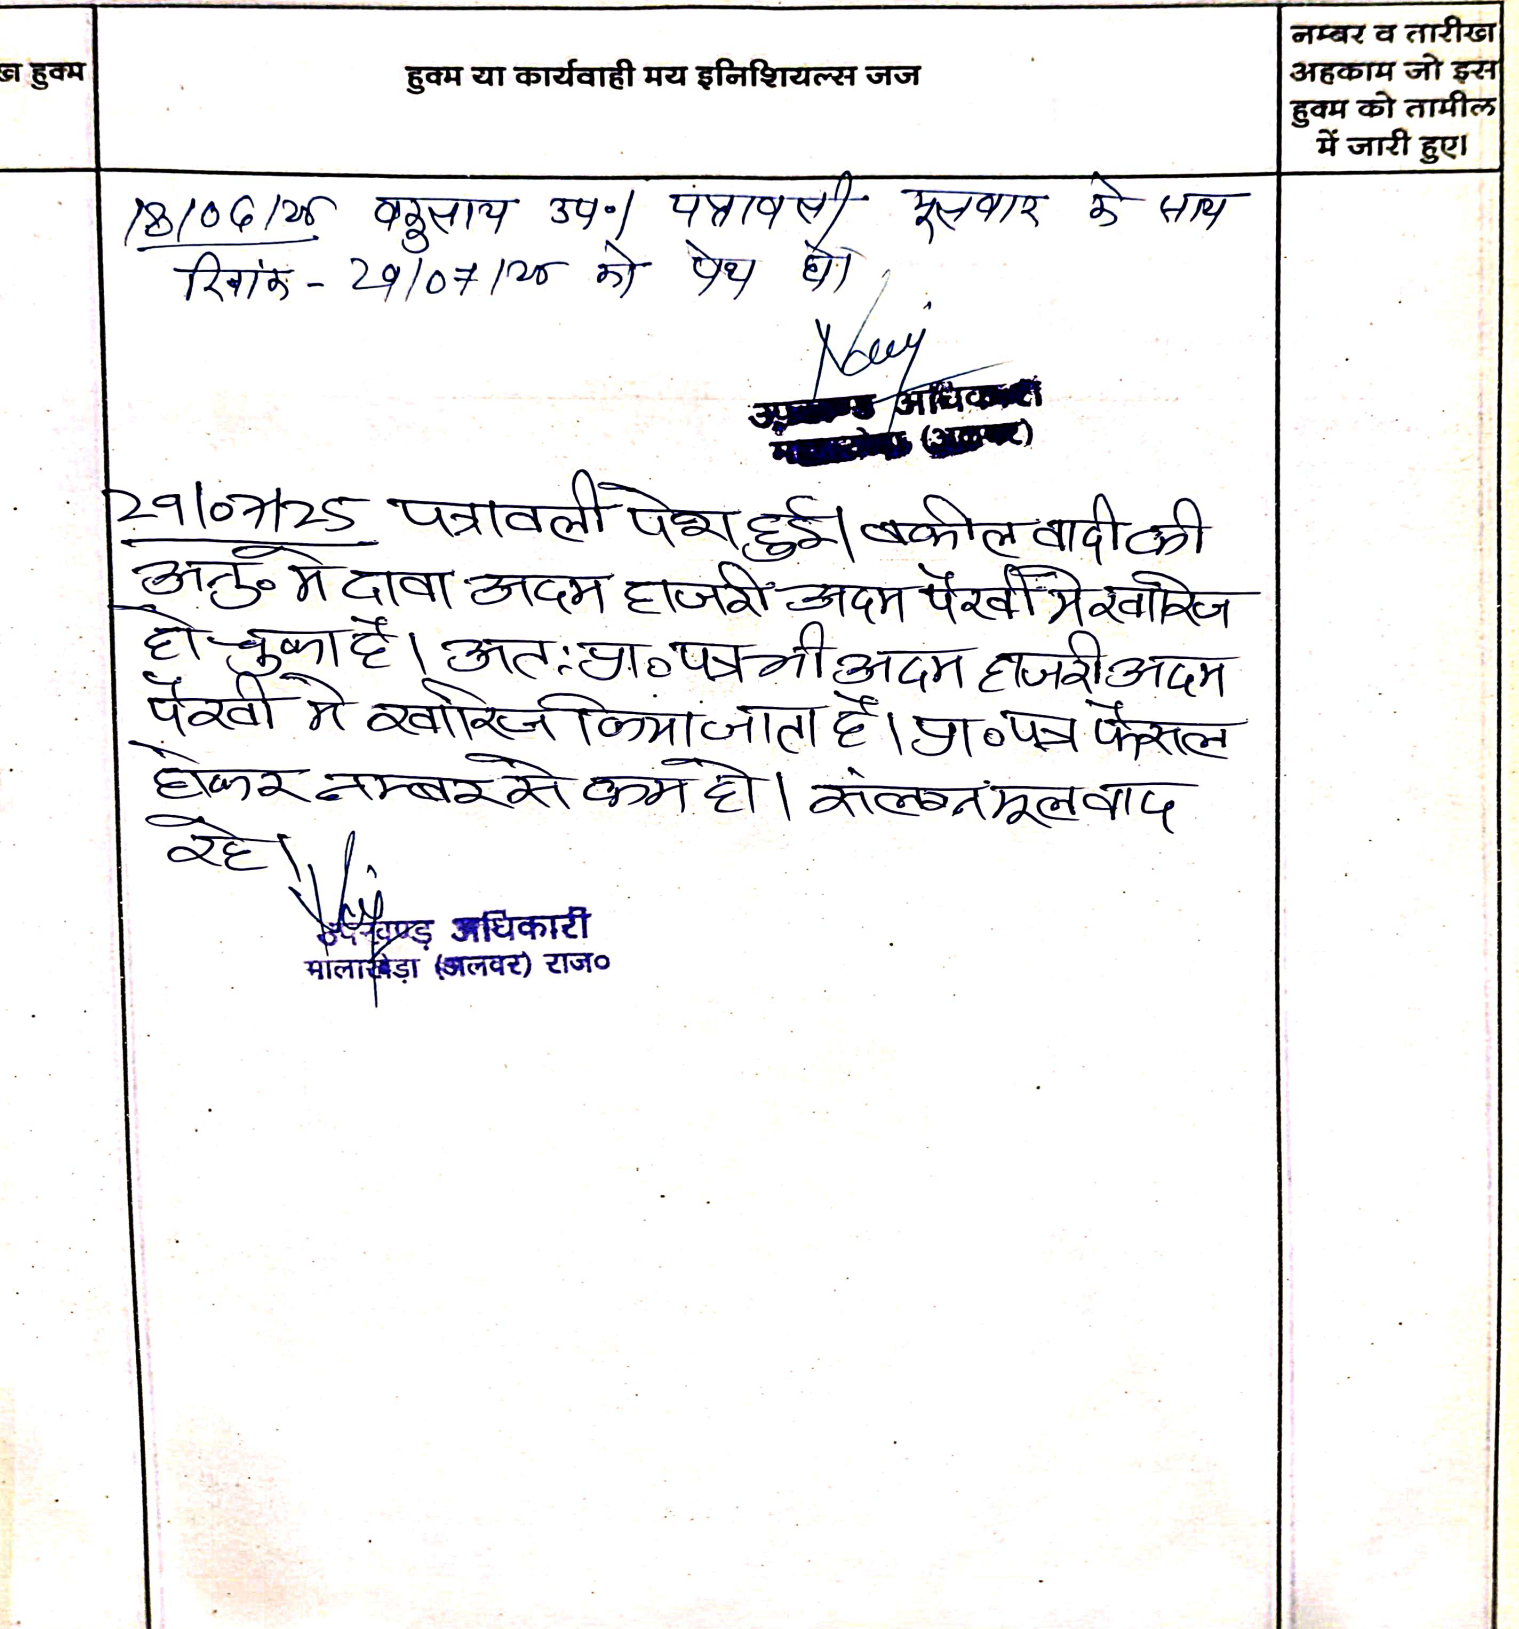 ख हुक्म
हुक्म या कार्यवाही मय इनिशियल्स जज
नम्बर व तारीख
अहकाम जो इस
हुक्म को तामील
में जारी हुए।
18/06/25 उप०। पत्रावली मूलवाद के साथ
दिनांक - 29/07/25 को पेश हो।
उपखण्ड अधिकारी
(अलवर)
29/07/25 पत्रावली पेश हुई। वकील वादी की
अनु० मे दावा अदम हाजरी अदम पैरवी मे खारिज
हो चुका है। अतः प्रा० पत्र भी अदम हाजरी अदम
पैरवी मे खारिज किया जाता है। प्रा० पत्र फैसल
होकर नम्बर से कम हो। संलग्न मूलवाद
रहे।
उपखण्ड अधिकारी
मालाखेड़ा (अलवर) राज०